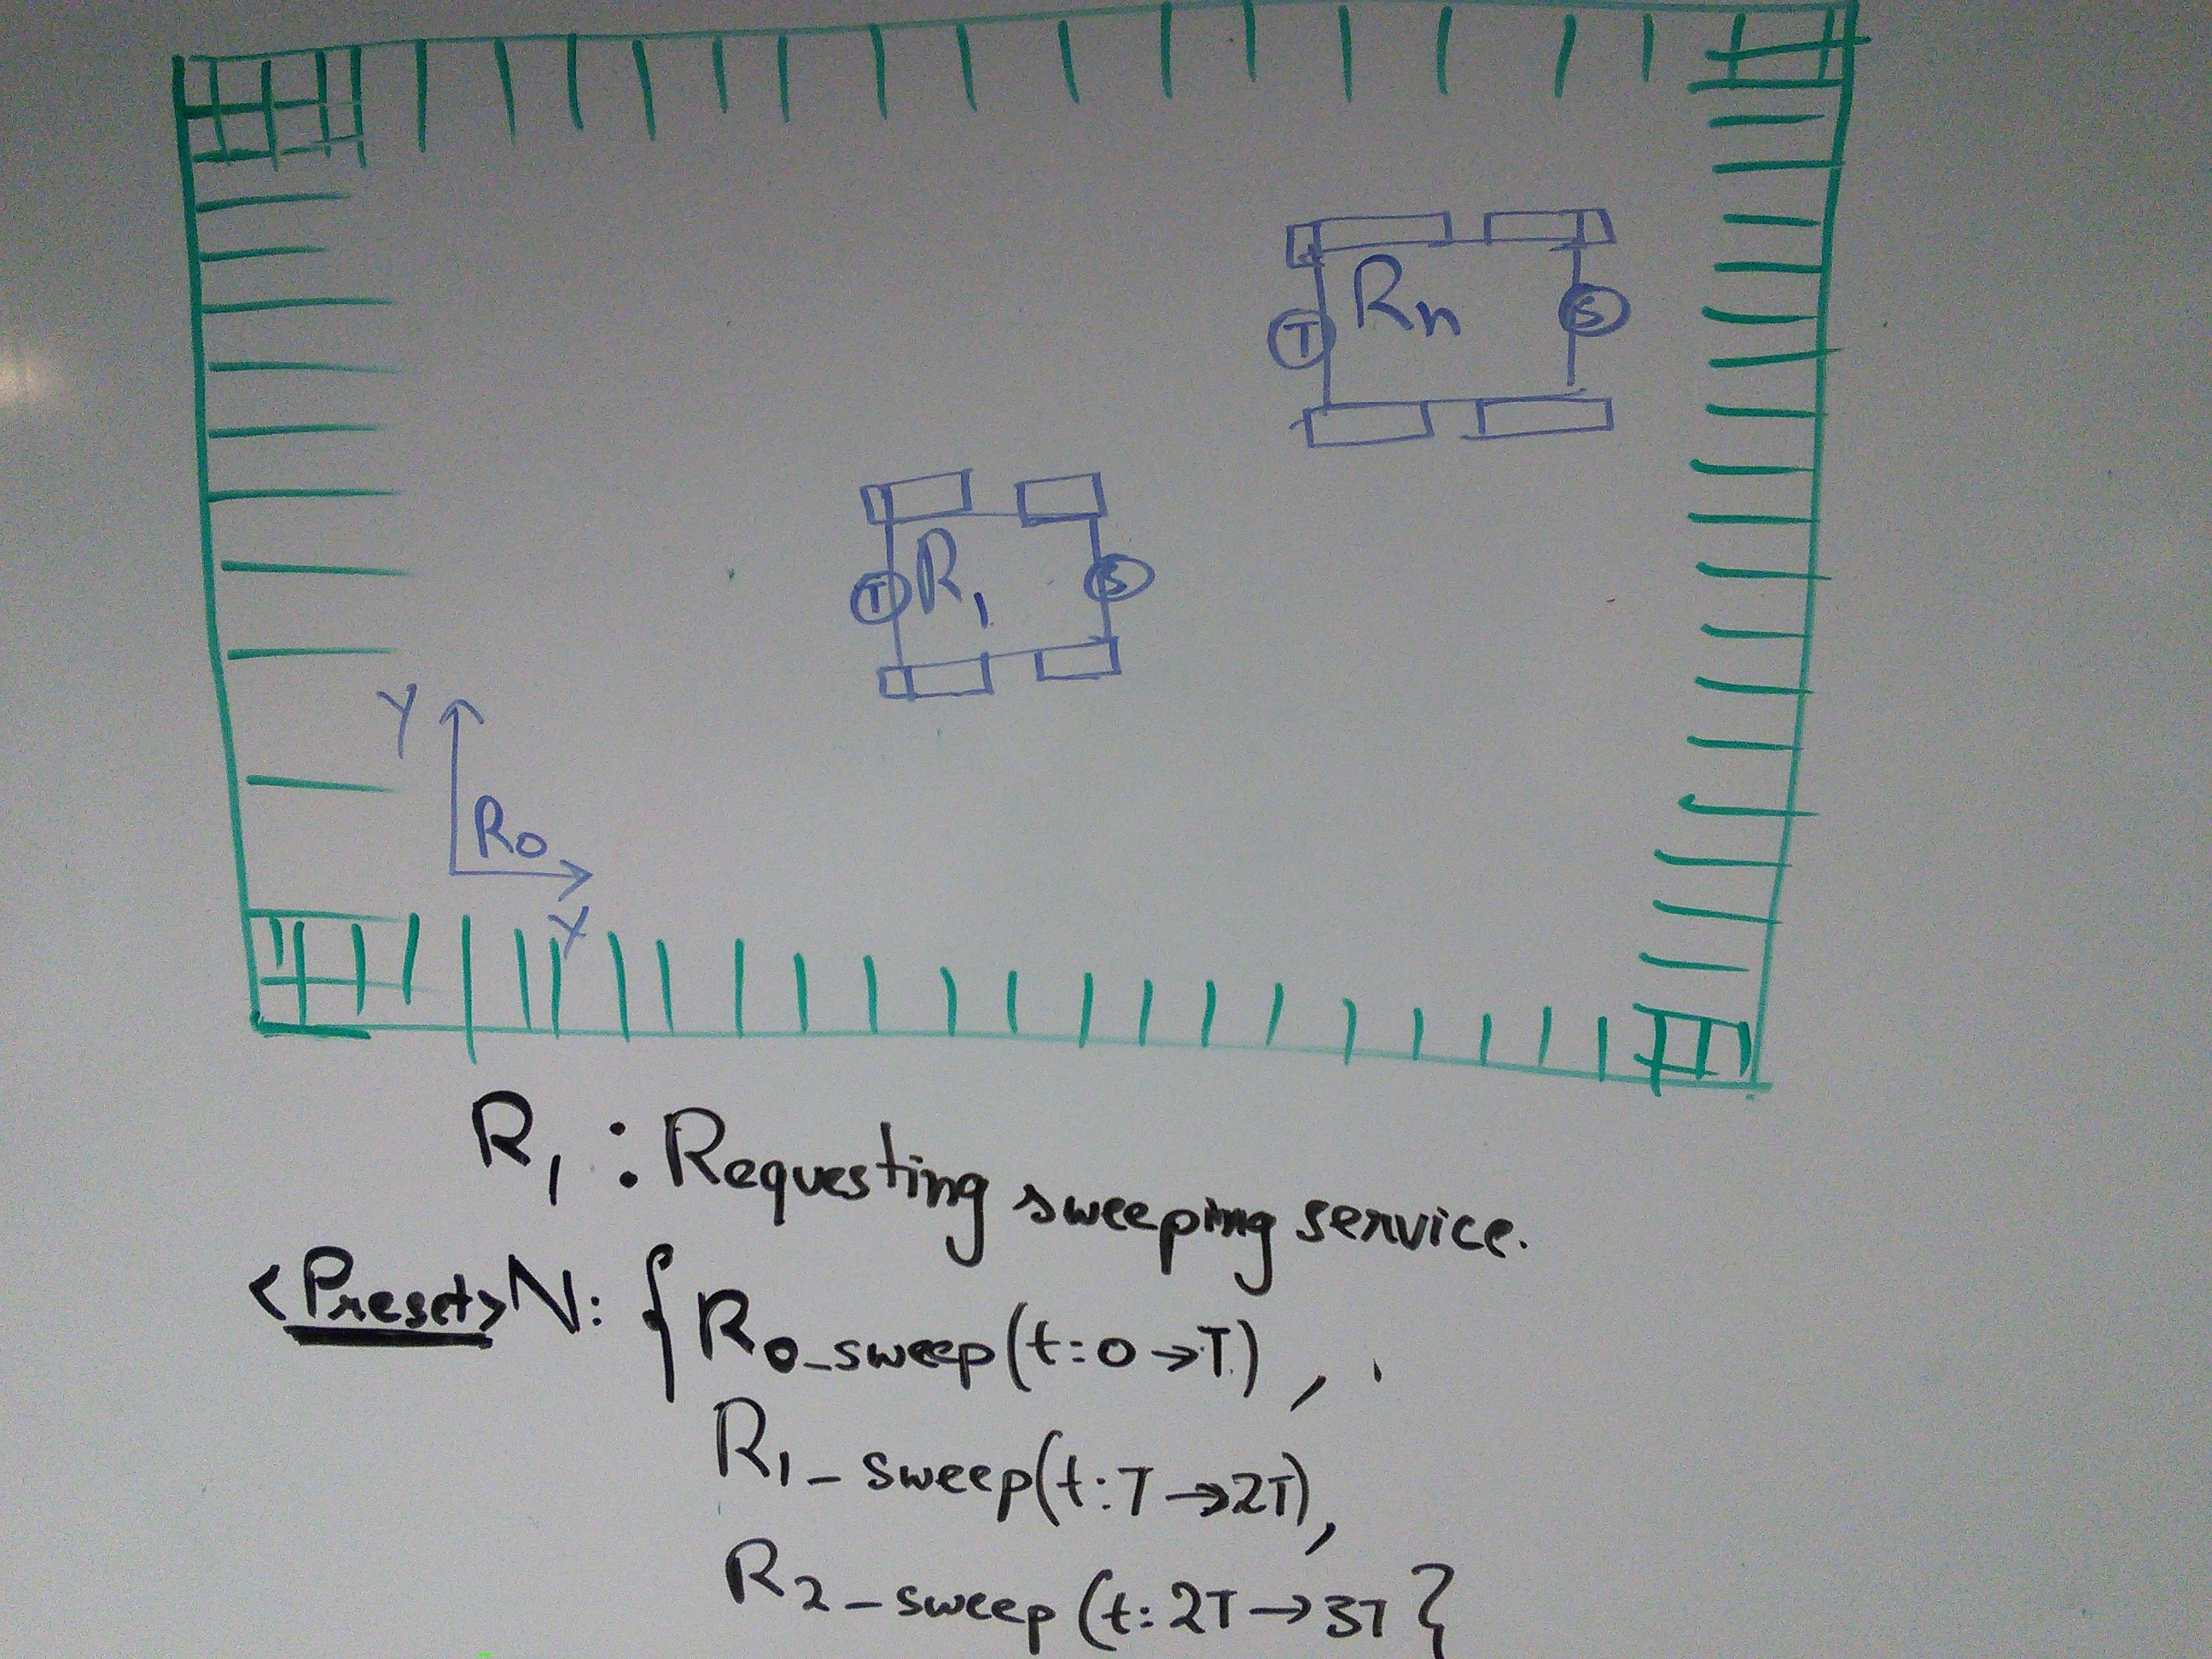 T Rn S
T R1 S
Y
R0
X
R1 : Requesting sweeping service.
<Preset> N: { R0_sweep(t:0→T) ,
R1_sweep(t:T→2T),
R2_sweep (t:2T→3T }